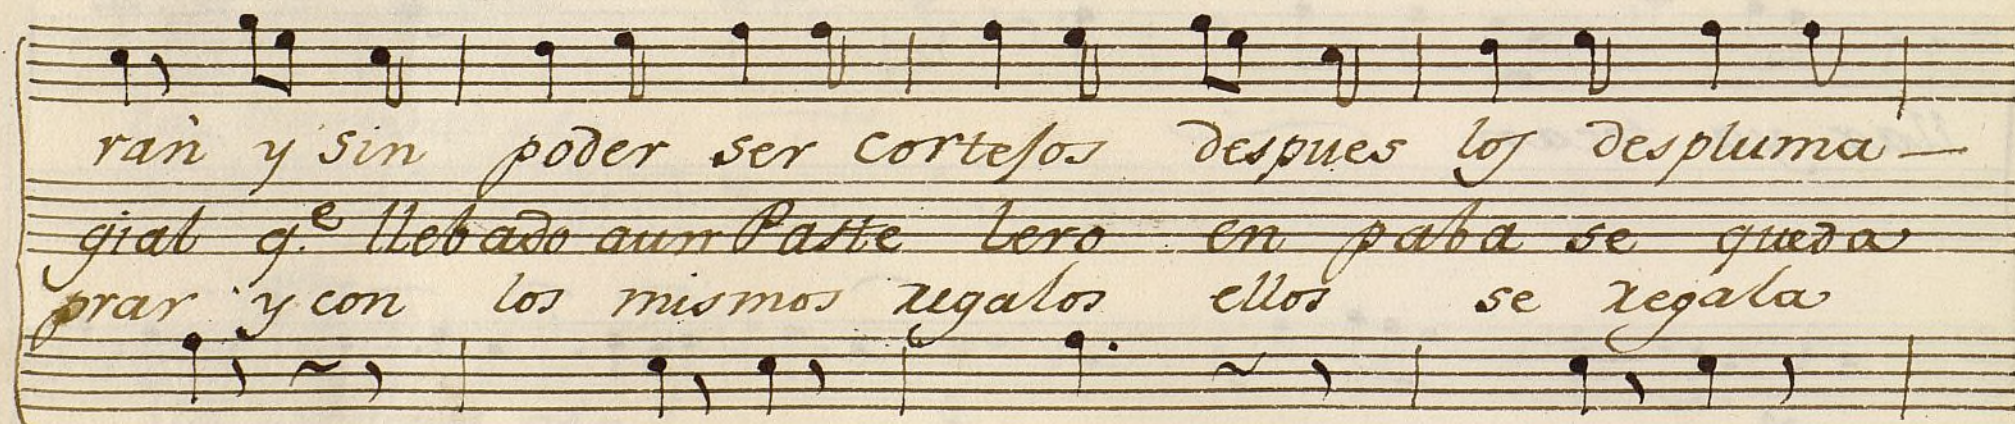 ran y sin poder ser cortejos despues los despluma—
gial q.e llebado aun Paste lero en paba se queda
prar y con los mismos regalos ellos se regala